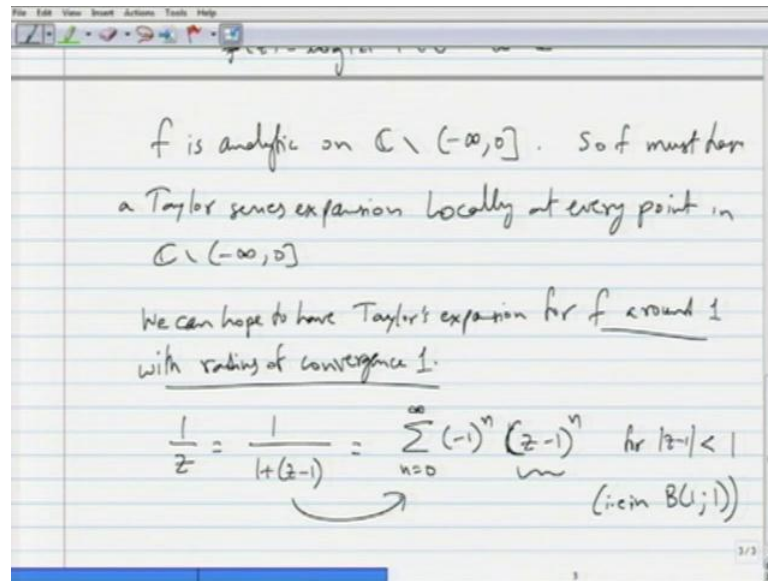 File Edit View Insert Actions Tools Help
f is analytic on ℂ \ (-∞,0]. So f must have
a Taylor series expansion locally at every point in
ℂ \ (-∞,0]
We can hope to have Taylor's expansion for f around 1
with radius of convergence 1.
1/z = 1/(1+(z-1)) = ∑_{n=0}^{∞} (-1)^n (z-1)^n for |z-1| < 1
(i.e in B(1;1))
3/3
3